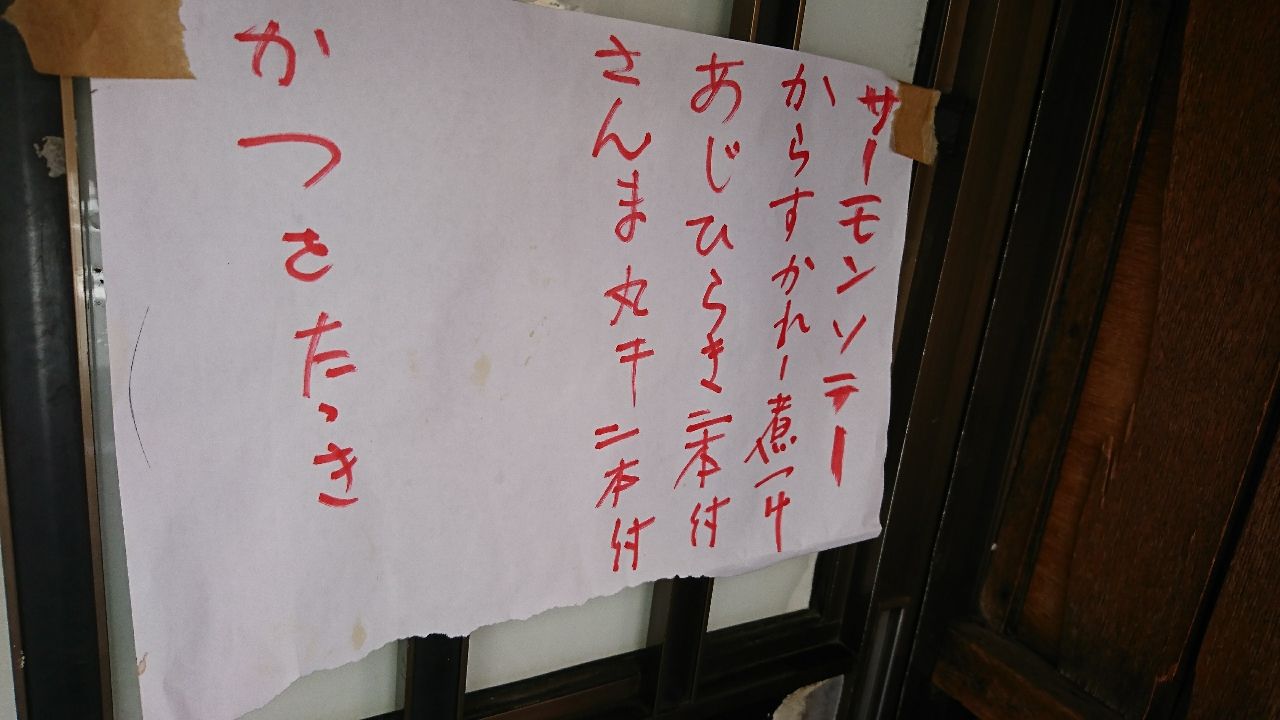 サーモンソテー
からすかれー煮つけ
あじひらき二本付
さんま丸干二本付
かつおたつき